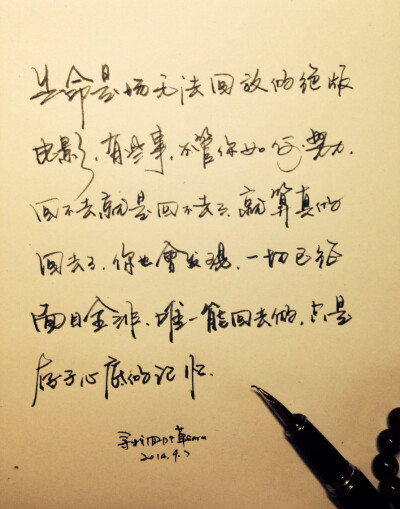 生命是场无法回放的绝版
电影，有些事，不管你如何努力，
回不去就是回不去了，就算真的
回去了，你也會发现，一切已经
面目全非，唯一能回去的，只是
存于心底的记忆。
寻找四叶草
2014.9.7